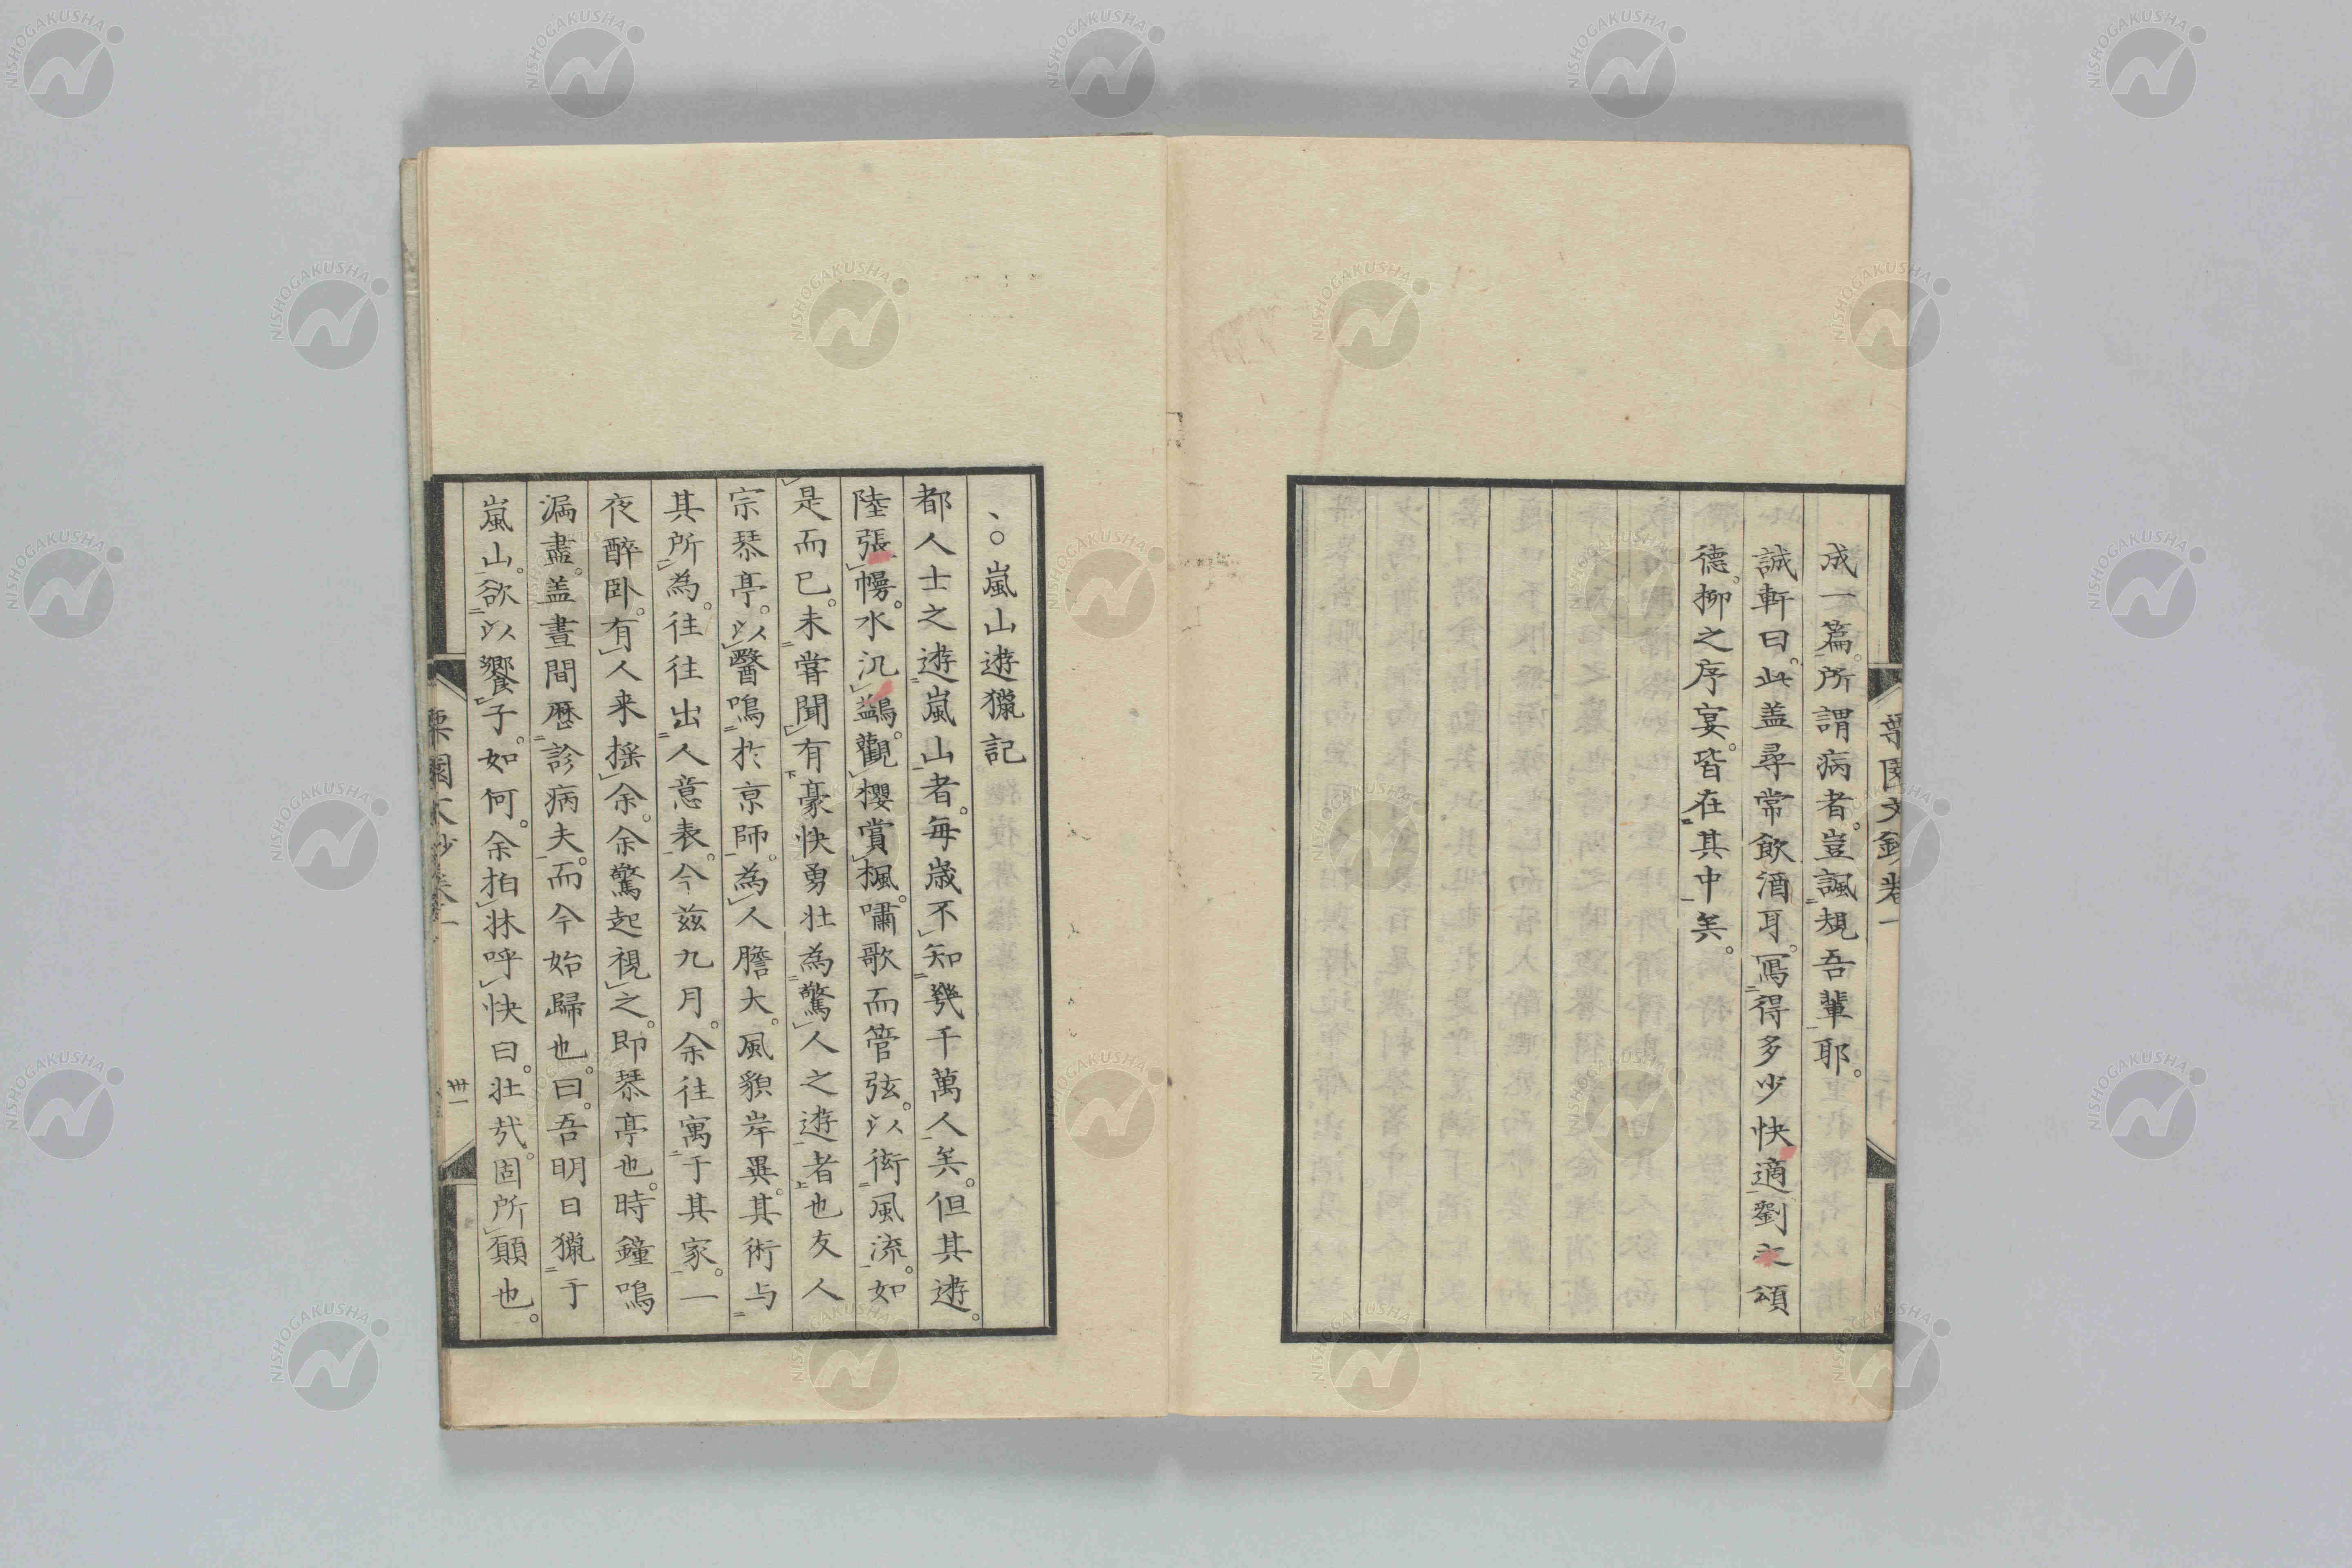 成一篇。所謂病者。豈諷規吾輩耶。
誠軒曰。此盖尋常飲酒耳。寫得多少快適。劉之頌
德。柳之序宴。皆在其中矣。
、○嵐山遊獵記
都人士之遊嵐山者。每歲不知幾千萬人矣。但其遊。
陸張幔。水汎鷁。觀櫻賞楓。嘯歌而管弦。以衒風流。如
是而已。未嘗聞有豪快勇壯為驚人之遊者也友人
宗琴亭。以醫鳴於京師。為人膽大。風貌岸異。其術与
其所為。往往出人意表。今茲九月。余往寓于其家。一
夜醉卧。有人来揺余。余驚起視之。即琴亭也。時鐘鳴
漏盡。盖晝間歷診病夫。而今始歸也。曰。吾明日獵于
嵐山。欲以饗子。如何。余拍牀呼快曰。壯哉。固所願也。
栗園文鈔卷一
卅一
NISHOGAKUSHA